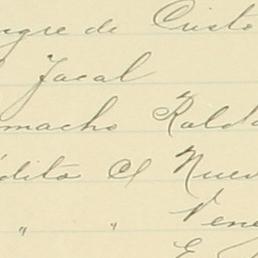 ngre de Cristo
Jacal
macho Rold
dito El Nuev
" " Vene